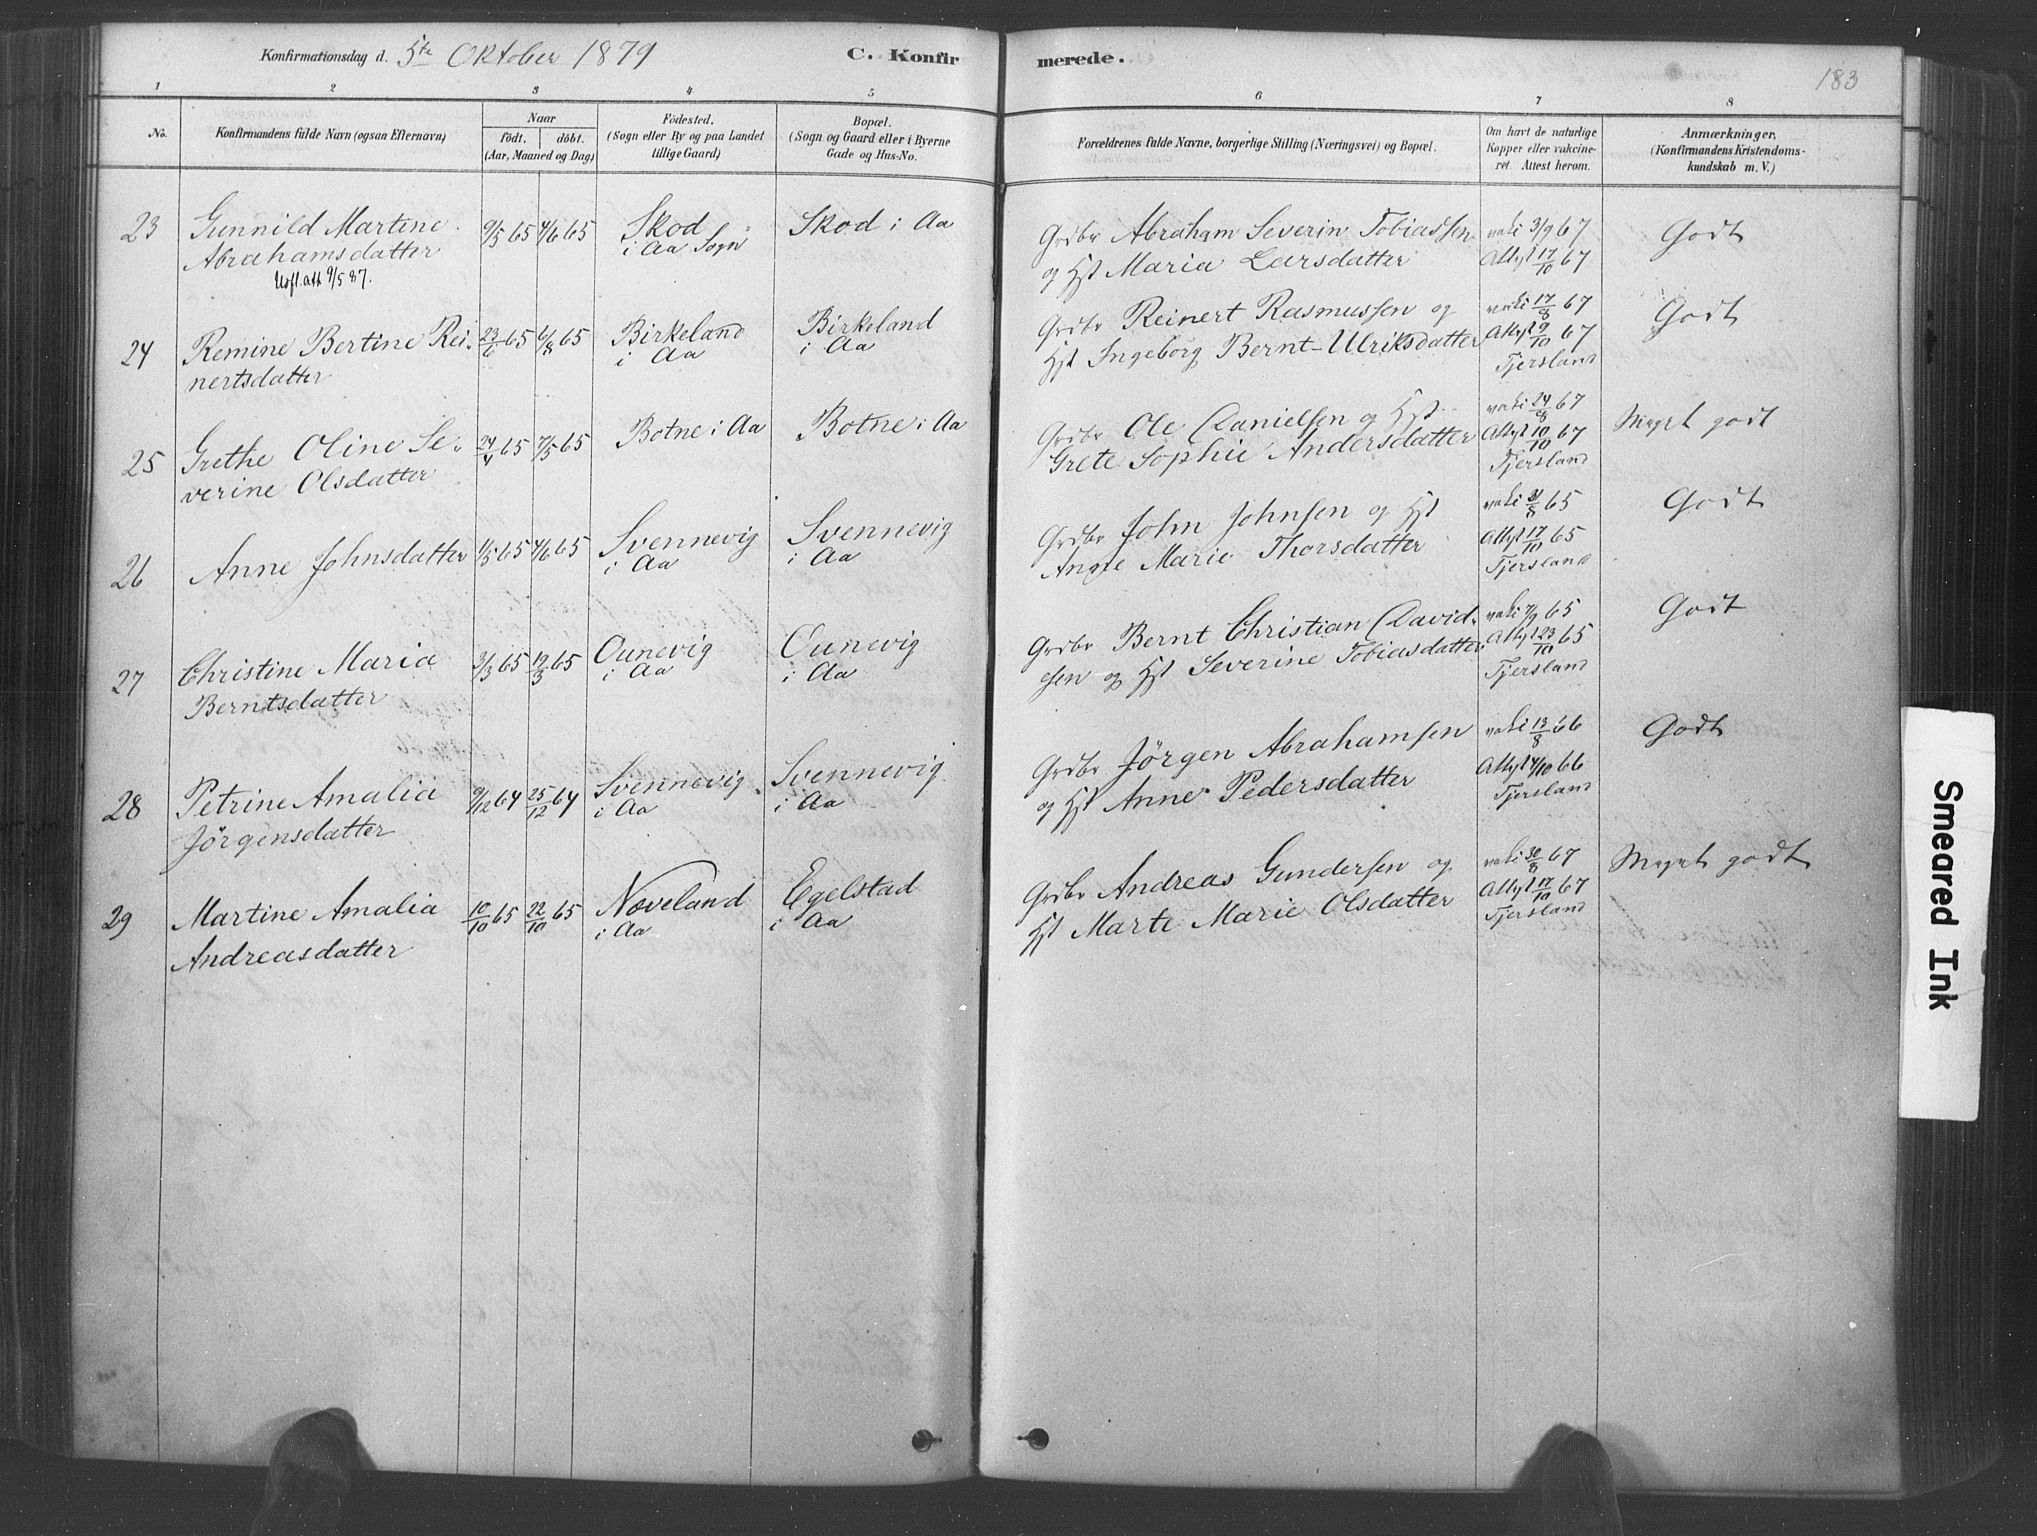 Konfirmationsdag d. 5te Oktober 1879
C. Konfirmerede.
183
1 2 3 4 5 6 7 8
No.
Konfirmandens fulde Navn (ogsaa Efternavn)
Naar
födt. döbt.
(Aar, Maaned og Dag)
Födested.
(Sogn eller By og paa Landet
tillige Gaard)
Bopæl.
(Sogn og Gaard eller i Byerne
Gade og Hus-No.
Forældrenes fulde Navne, borgerlige Stilling (Næringsvei) og Bopæl.
Om havt de naturlige
Kopper eller vakcine-
ret. Attest herom.
Anmærkninger,
(Konfirmandens Kristendoms-
kundskab m. V.)
23
Gunnild Martine
Abrahamsdatter
Utfl. att 9/5 87.
9/5 65 4/6 65
Skod
i Aa Sogn
Skod i Aa
Grdbr Abraham Severin Tobiassen
og Hst Maria Larsdatter
vaki 3/9 67
Attest 17/10 67
Godt
24
Remine Bertine Rei-
nertsdatter
23/6 65 6/8 65
Birkeland
i Aa
Birkeland
i Aa
Grdbr Reinert Rasmussen og
Hst Ingeborg Bernt-Ulriksdatter
vaki 17/8 67
Attest 9/10 67
Tjersland
Godt
25
Grethe Oline Se-
verine Olsdatter
24/4 65 7/5 65
Botne i Aa
Botne i Aa
Grdbr Ole Danielsen og Hst
Grete Sophie Andersdatter
vaki 24/8 67
Attest 10/10 67
Tjersland
Meget godt
26
Anne Johnsdatter
1/5 65 4/6 65
Svennevig
i Aa
Svennevig
i Aa
Grdbr John Johnsen og Hst
Anne Marie Thorsdatter
vaki 31/8 65
Attest 17/10 65
Tjersland
Godt
27
Christine Maria
Berntsdatter
3/3 65 19/3 65
Ounevig
i Aa
Ounevig
i Aa
Grdbr Bernt Christian David-
sen og Hst Severine Tobiasdatter
vaki 7/9 65
Attest 23/10 65
Tjersland
Godt
28
Petrine Amalia
Jörgensdatter
9/12 64 25/12 64
Svennevig
i Aa
Svennevig
i Aa
Grdbr Jørgen Abrahamsen
og Hst Anne Pedersdatter
vaki 13/8 66
Attest 4/10 66
Tjersland
Godt
29
Martine Amalia
Andreasdatter
10/10 65 22/10 65
Næveland
i Aa
Egelstad
i Aa
Grdbr Andreas Gundersen og
Hst Marte Marie Olsdatter
vaki 30/8 67
Attest 17/10 67
Tjersland
Meget godt
Smeared Ink